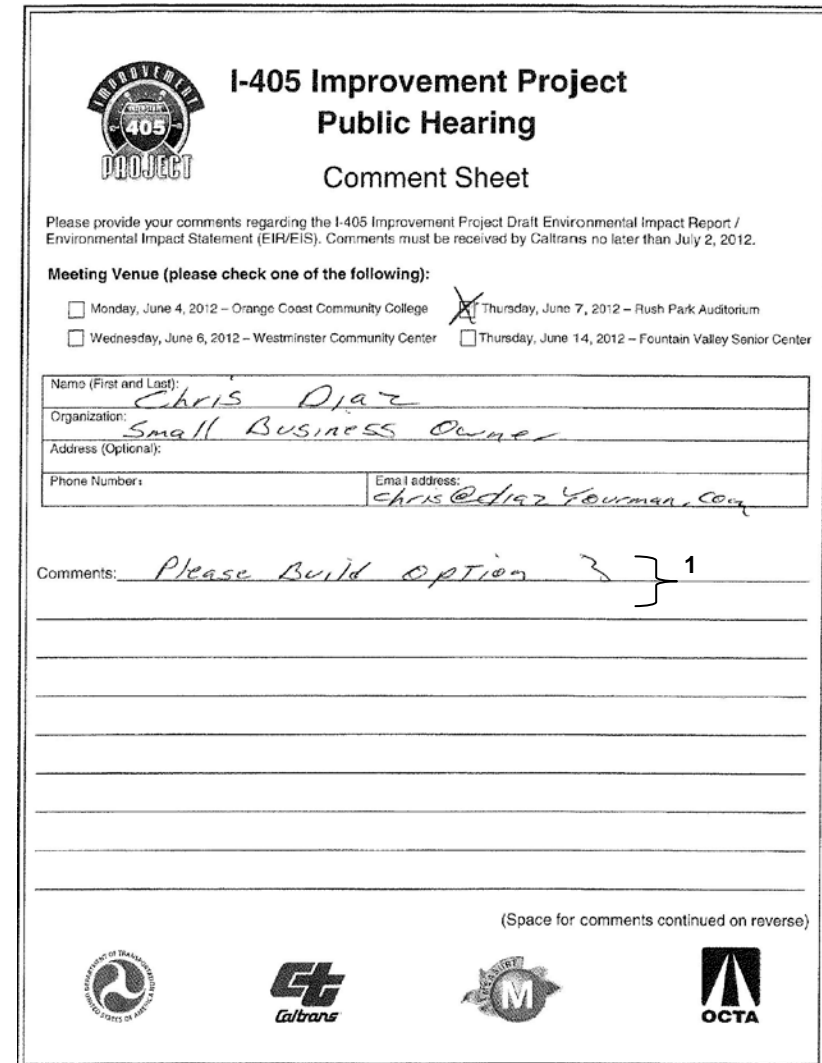 IMPROVEMENT
INTERSTATE
405
PROJECT
I-405 Improvement Project
Public Hearing
Comment Sheet
Please provide your comments regarding the I-405 Improvement Project Draft Environmental Impact Report /
Environmental Impact Statement (EIR/EIS). Comments must be received by Caltrans no later than July 2, 2012.
Meeting Venue (please check one of the following):
Monday, June 4, 2012 – Orange Coast Community College
Thursday, June 7, 2012 – Rush Park Auditorium
Wednesday, June 6, 2012 – Westminster Community Center
Thursday, June 14, 2012 – Fountain Valley Senior Center
Name (First and Last): Chris Diaz
Organization: Small Business Owner
Address (Optional):
Phone Number:
Email address: chris@diazYourman.com
Comments: Please Build OpTion 3
1
(Space for comments continued on reverse)
DEPARTMENT OF TRANSPORTATION
UNITED STATES OF AMERICA
Ct
Caltrans
MEASURE
M
OCTA